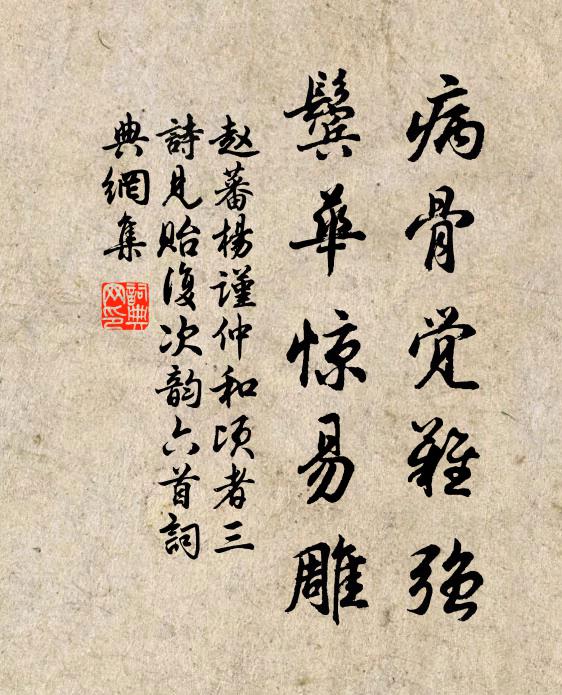 病骨觉难强
鬓华惊易雕
赵蕃杨谨仲和顷者三
詩見贻复次韵六首詞
典網集
詞典网印